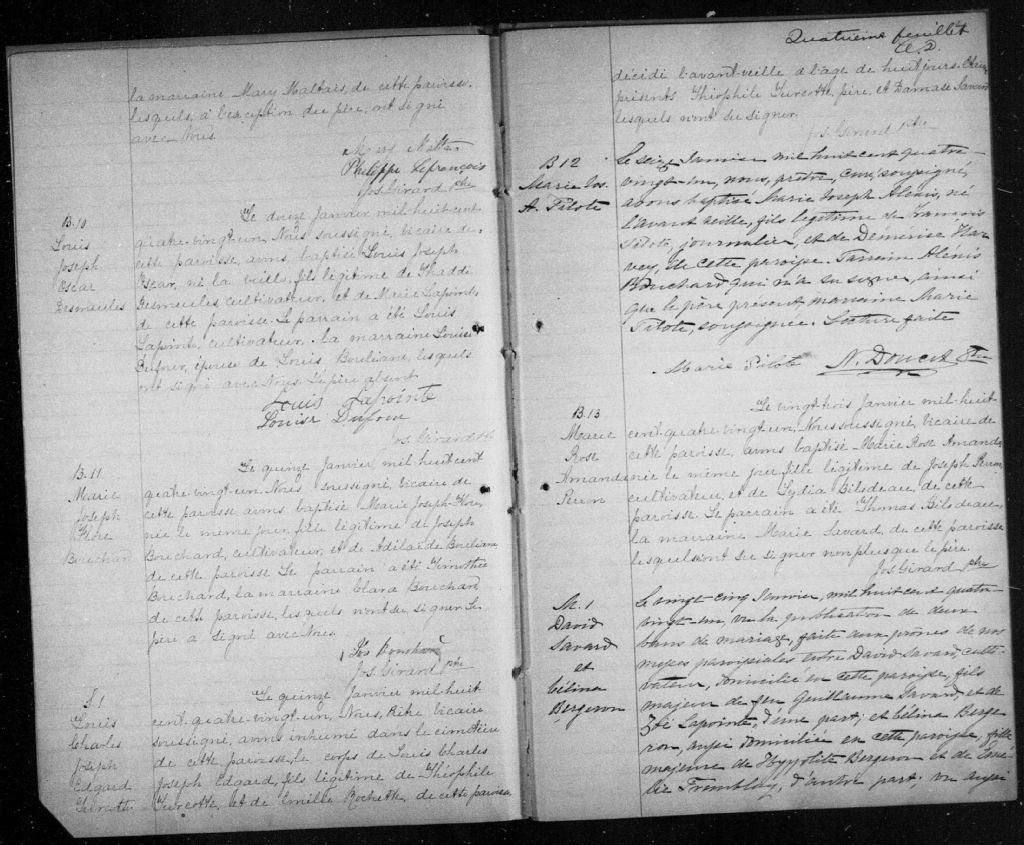 la marraine Mary Maltais, de cette paroisse,
lesquels, à l'exception du père, ont signé
avec Nous.
Mary Maltais
Philippe Lefrançois
Jos Girard ptre
B.10
Louis
Joseph
Oscar
Desmeules
Le douze Janvier mil-huit-cent
quatre-vingt-un, Nous soussigné, vicaire de
cette paroisse, avons baptisé Louis Joseph
Oscar, né la veille, fils légitime de Thaddé
Desmeules cultivateur, et de Marie Lapointe,
de cette paroisse. Le parrain a été Louis
Lapointe, cultivateur, la marraine Louise
Dufour, épouse de Louis Bouliane, lesquels
ont signé avec Nous. Le père absent.
Louis Lapointe
Louise Dufour
Jos. Girard ptre
B.11
Marie
Joseph
Flore
Bouchard
Le quinze Janvier mil-huit cent
quatre-vingt-un, Nous soussigné, vicaire de
cette paroisse avons baptisé Marie Joseph-Flore
née le même jour, fille légitime de Joseph
Bouchard, cultivateur, et de Adélaïde Bouliane
de cette paroisse. Le parrain a été Timothée
Bouchard, la marraine Clara Bouchard
de cette paroisse, lesquels n'ont su signer. Le
père a signé avec Nous.
Jos Bouchard
Jos. Girard ptre
S.1
Louis
Charles
Joseph
Edgard
Turcotte
Le quinze Janvier mil-huit
cent-quatre-vingt-un, Nous, Prêtre vicaire
soussigné, avons inhumé dans le cimetière
de cette paroisse, le corps de Louis Charles
Joseph Edgard, fils légitime de Théophile
Turcotte, et de Emillie Rochette, de cette paroisse,
Quatrième feuillet
décédé l'avant-veille à l'âge de huit jours. Etaient
présents Théophile Turcotte, père, et Damase
lesquels n'ont su signer.
Jos. Girard ptre
B12
Marie Jos.
A. Pilote
Le seize Janvier mil huit cent quatre-
vingt-un, nous, prêtre, curé soussigné,
avons baptisé Marie Joseph Alexis, né
l'avant veille, fils légitime de François
Pilote, journalier, et de Démérise Har-
vey, de cette paroisse. Parrain Alexis
Bouchard qui n'a su signer, ainsi
que le père présent, marraine Marie
Pilote, soussignée. Lecture faite
Marie Pilote N. Doucet Ptre
B.13
Marie
Rose
Amanda
Perron
Le vingt-trois Janvier mil-huit
cent-quatre-vingt-un, Nous soussigné, vicaire de
cette paroisse, avons baptisé Marie Rose Amanda
née le même jour, fille légitime de Joseph Perron
cultivateur, et de Lydia Bilodeau, de cette
paroisse. Le parrain a été Thomas Bilodeau,
la marraine Marie Savard de cette paroisse
lesquels n'ont su signer non plus que le père.
Jos Girard ptre
M.1
David
Savard
et
Célina
Bergeron
Le vingt-cinq Janvier, mil huit cent quatre
vingt-un, vu la publication de deux
bans de mariage, faite aux prônes de nos
messes paroissiales entre David Savard, culti-
vateur, domicilié en cette paroisse, fils
majeur de feu Guillaume Savard, et de
Zoé Lapointe, d'une part; et Célina Berge-
ron, aussi domiciliée en cette paroisse, fille
majeure de Hyppolite Bergeron et de
Tremblay, d'autre part: vu aussi